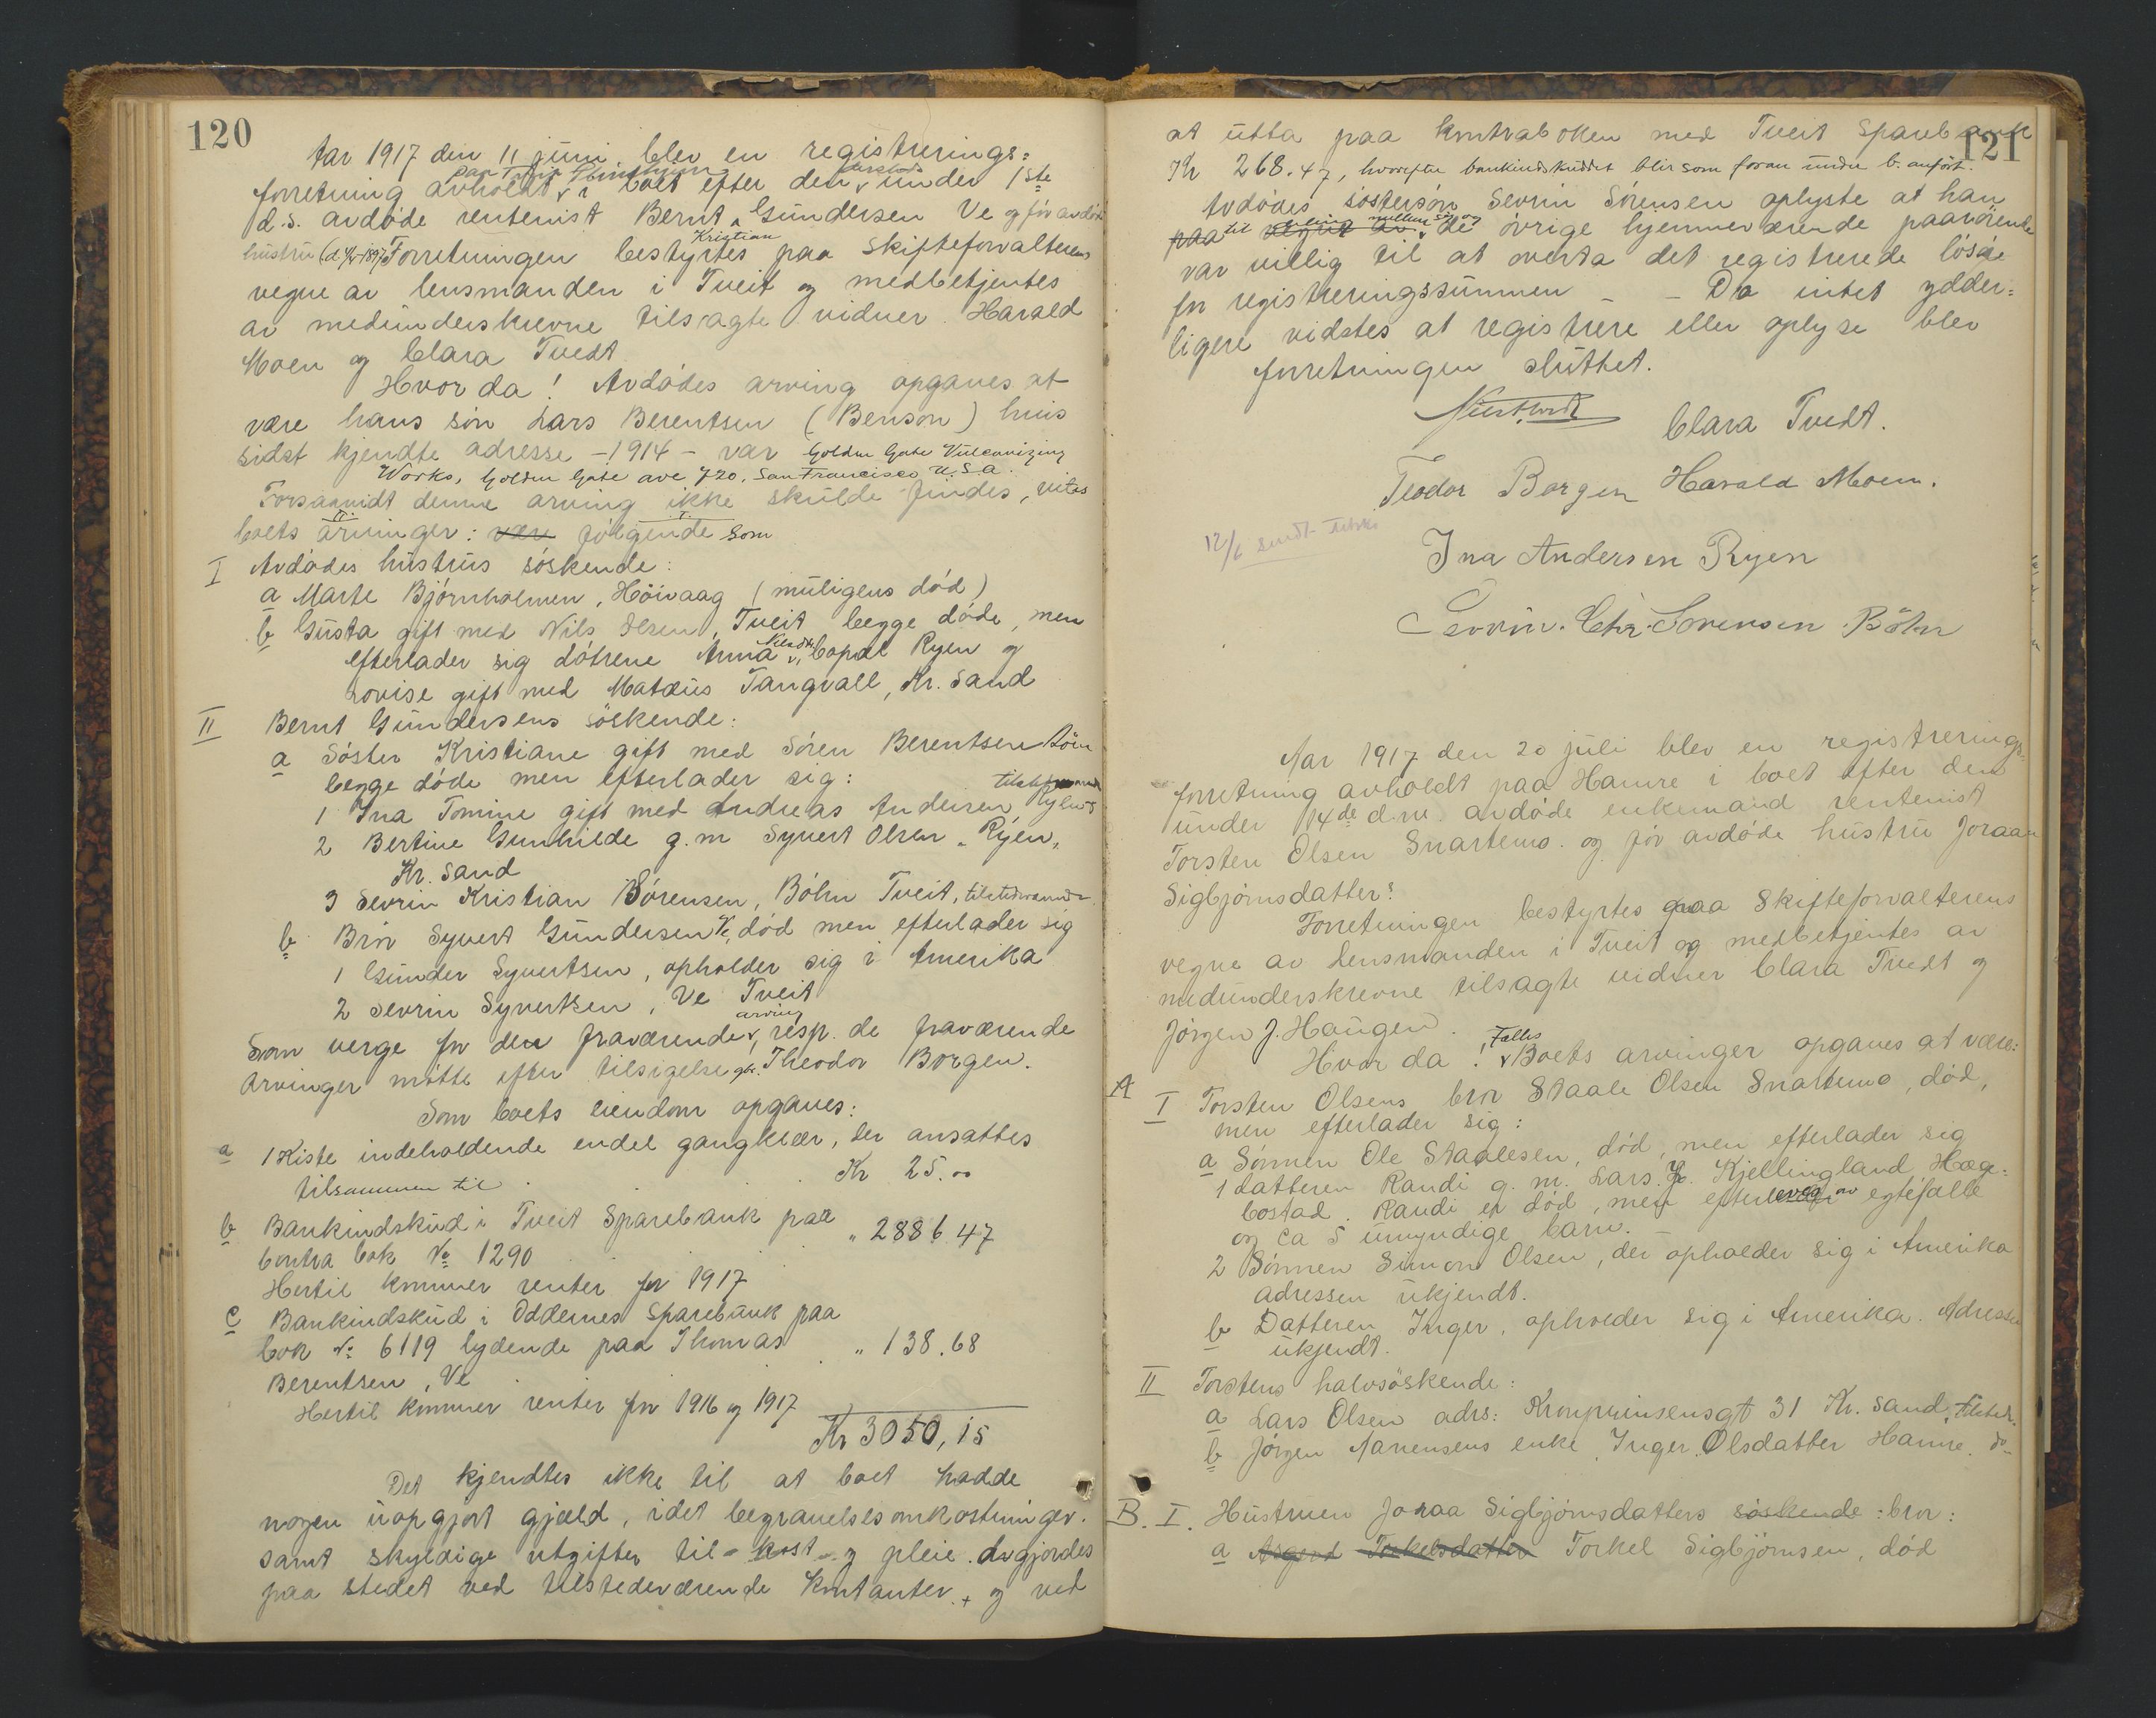 120
Aar 1917 den 11 juni blev en registrerings=
forretning avholdt i boet efter den under 1ste
d.s. avdøde rentenist Bernt Kristian Gundersen Ve og før avdøde
hustru Forretningen bestyrtes paa skifteforvalterens
vegne av lensmanden i Tveit og medbetjentes
av medunderskrevne tilsagte vidner Harald
Moen og Clara Tvedt
Hvor da! Avdødes arving opgaves at
være hans søn Lars Berentsen (Benson) hvis
sidst kjendte adresse - 1914 - var Golden Gate Vulcanizing
Works, Golden Gate ave 720, San Francisco U.S.a.
Forsaavidt denne arving ikke skulde findes, vites
boets arvinger: være følgende som
I Avdødes hustrus søskende:
a Marte Bjørnholmen, Høivaag (muligens død)
b Gusta gift med Nils Olsen, Tveit begge døde, men
efterlader sig døtrene Anna Copal Ryen og
Lovise gift med Matæus Tangvall, Kr. Sand
II Bernt Gundersens søskende:
a Søster Kristiane gift med Søren Berentsen Bøen
begge døde men efterlader sig:
1 Ina Tomine gift med Andreas Andersen Ryen
2 Bertine Gunhilde g.m Syvert Olsen Ryen,
Kr. Sand
3 Sevrin Kristian Sørensen, Bøhn Tveit, tilstedværende
b Bror Syvert Gundersen Ve, død men efterlader sig
1 Gunder Syvertsen, opholder sig i Amerika
2 Sevrin Syvertsen, Ve Tveit
Som verge for den fraværende arving, resp. de fraværende
arvinger møtte efter tilsigelse gbr. Theodor Borgen.
Som boets eiendom opgaves:
a 1 Kiste indeholdende endel gangklær, der ansattes
tilsammen til Kr 25.00
b Bankindskud i Tveit Sparebank paa
Contra bok № 1290 " 2886 47
Hertil kommer renter for 1917
c Bankindskud i Oddernes Sparebank paa
bok № 6119 lydende paa Thomas " 138.68
Berentsen, Ve
Hertil kommer renter for 1916 og 1917
Kr 3050,15
Det kjendtes ikke til at boet hadde
nogen uopgjort gjæld, idet begravelsesomkostninger
samt skyldige utgifter til kost og pleie avgjordes
paa stedet ved tilstedeværende kontanter + og ved
121
at utta paa kontraboken med Tveit Sparebank
Kr 268.47, hvorefter bankindskuddet blir som foran under b. anført.
Avdødes søstersøn Sevrin Sørensen oplyste at han
paa til deling mellem sig og de øvrige hjemmeværende paarørende
var villig til at overta det registrerede løsøre
for registreringssummen - - Da intet ydder=
ligere vidstes at registrere eller oplyse blev
forretningen sluttet.
Clara Tvedt.
Teodor Borgen Harald Moen.
12/6 sendt
Ina Andersen Ryen
Sevrin. Chr. Sorensen Böhn
Aar 1917 den 20 juli blev en registrerings=
forretning avholdt paa Hamre i boet efter den
under 14de d.m. avdøde enkemand rentenist
Torsten Olsen Snartemo og før avdøde hustru Joraan
Sigbjørnsdatter:
Forretningen bestyrtes paa Skifteforvalterens
vegne av Lensmanden i Tveit og medbetjentes av
medunderskrevne tilsagte vidner Clara Tvedt og
Jørgen J. Haugen.
Hvor da! Fælles Boets arvinger opgaves at være:
A I Torsten Olsens bror Staale Olsen Snartemo, død,
men efterlader sig:
a Sønnen Ole Staalesen, død, men efterlader sig
1 datteren Randi g. m. Lars Kjellingland, Hæge=
bostad. Randi er død, men efterl av egtefælle
og ca 5 umyndige barn.
2 Sønnen Simon Olsen, der opholder sig i Amerika
adressen ukjendt.
b Datteren Inger, opholder sig i Amerika. Adressen
ukjendt.
II Torstens halvsøskende:
a Lars Olsen adrs: Kronprinsensgt 31 Kr. Sand, tilsted.
b Jørgen Aanensens enke, Inger Olsdatter Hamre do
B. I. Hustruen Joraa Sigbjørnsdatters søskende: bror:
a Asgerd Torkelsdatter Torkel Sigbjørnsen, død